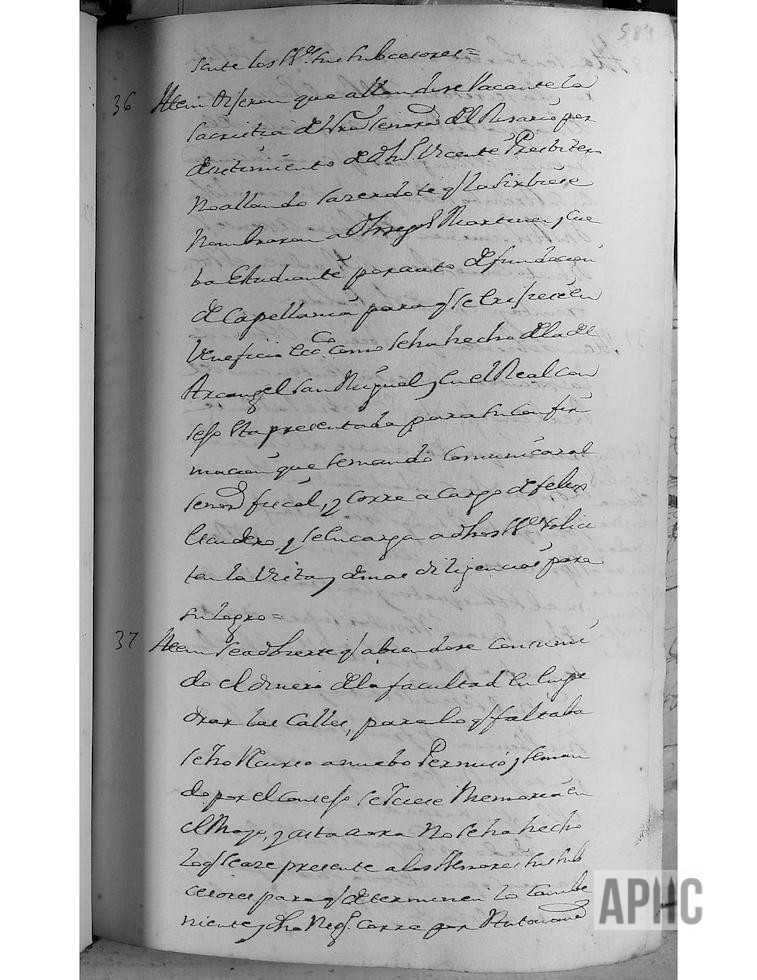 584
sente los SS.es sus subcesores=
36 Item dijeron que allandose Vacante la
Sacristia de Nra Señora del Rosario por
de Dn Vicente Presbitero
No allando Sazerdote q̃ la Sirbiese
Nombraron a Martinez Cue
ba Estudiante para auto de fundacion
de Capellania para q̃ se
Veneficio Ecco como se ha hecho de la del
Arcangel San Miguel y en el Real con
sejo Sta presentado para su confir
macion que se mando comunicar al
Señor fiscal, y corre a cargo de felix
Escudero y se encarga a dhos SS.es solici
ten la Vista y demas diligencias para
su logro=
37 Item se adbierte q̃ abiendose consumi
do el dinero de la facultad en
drar las Calles, para lo q̃ faltaba
se ha a nuebo Permiso y se man
do por el consejo se Memoria en
el Mayo, y asta aora No se ha hecho
lo q̃ se aze presente a los SSenores sus sub
cesores para q̃ determinen lo combe
niente y dho Neg.o corre por Antonio
APHC